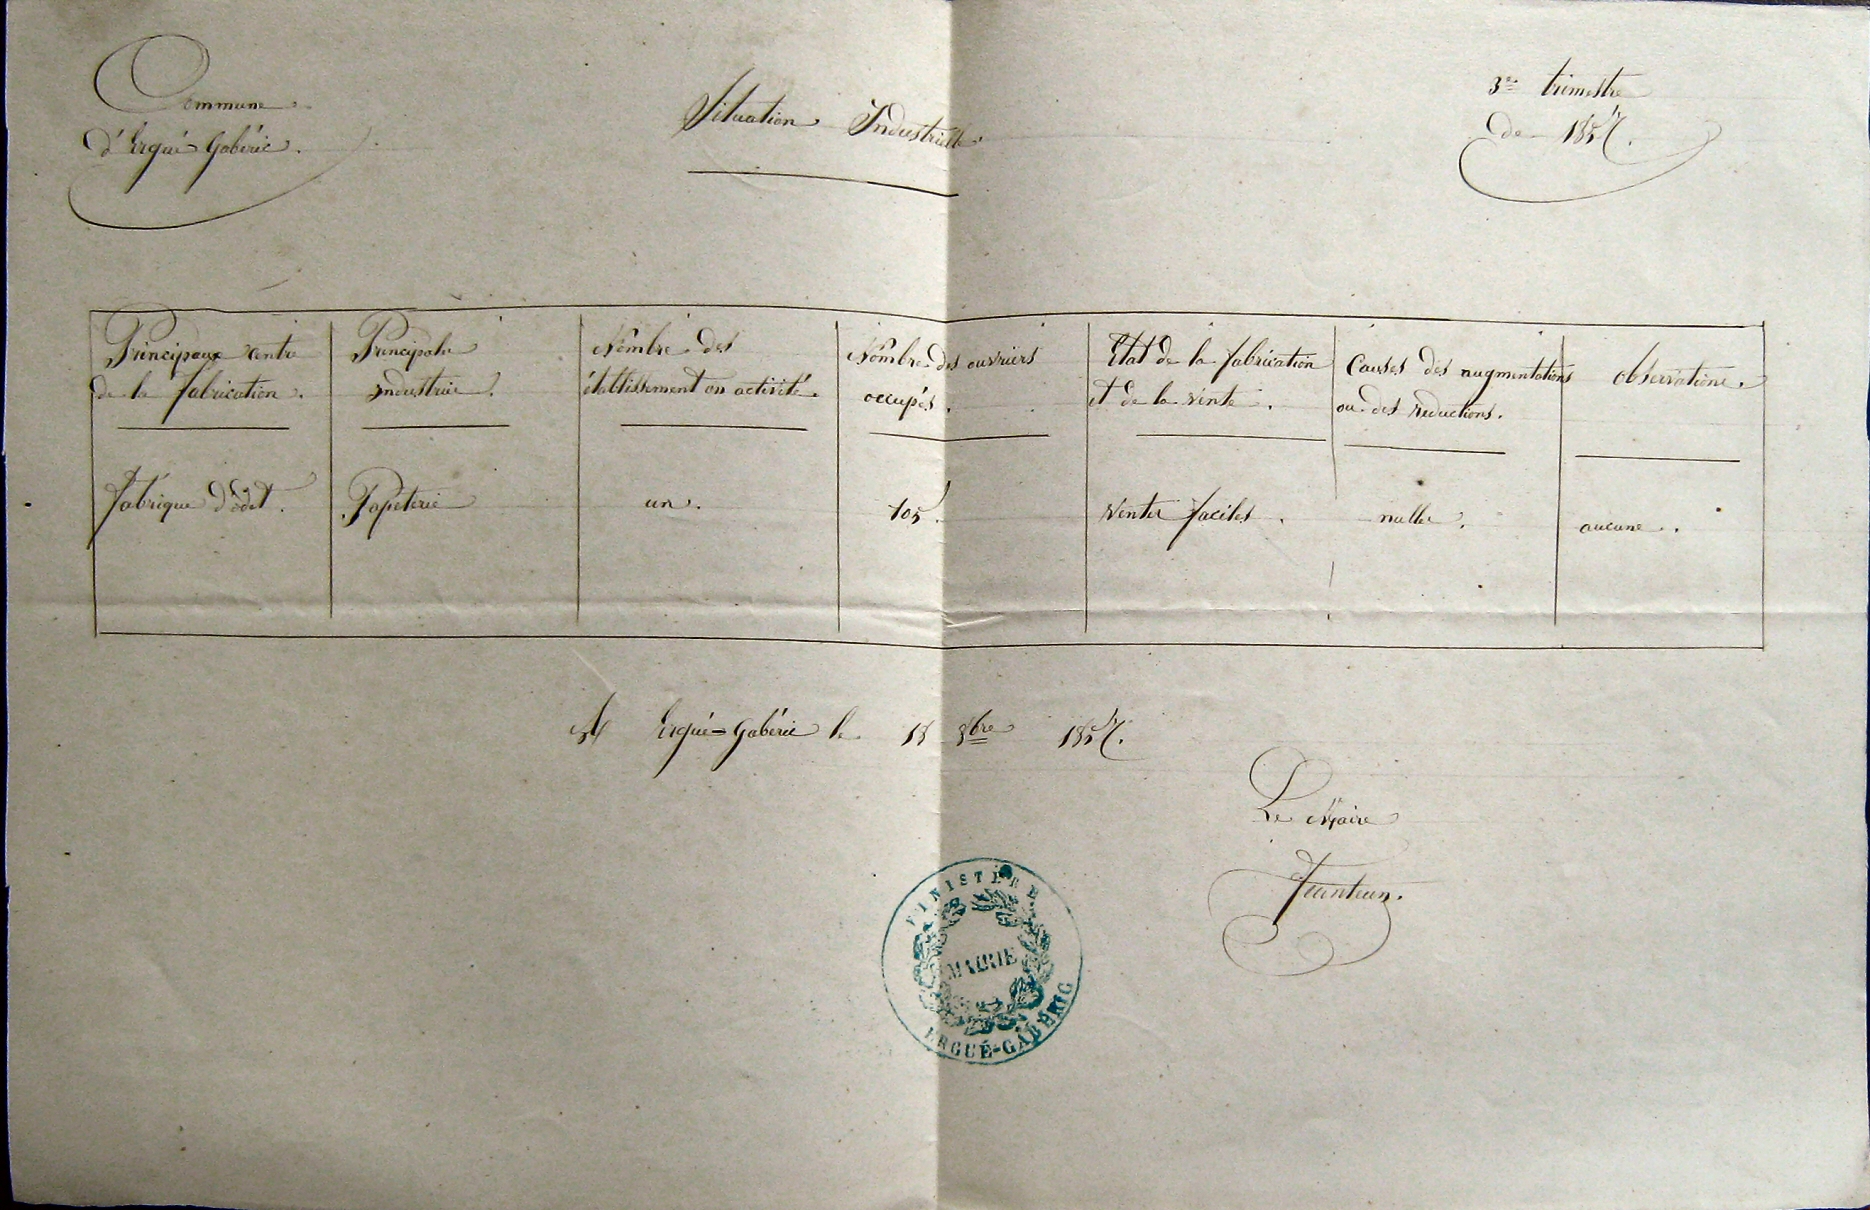 Commune
d'Ergué-Gabéric.
Situation Industrielle.
3e trimestre
de 1857.
Principaux centre
de la fabrication.
Principale
industrie.
Nombre des
établissement en activité.
Nombre des ouvriers
occupés.
Etat de la fabrication
et de la vente.
Causes des augmentations
ou des reductions.
Observations.
fabrique d'odet.
Papeterie
un.
105.
Ventes faciles.
nulle.
aucune.
A Ergué-Gabéric le 18 8bre 1857.
Le Maire
FINISTÈRE
MAIRIE
ERGUÉ-GABÉRIC